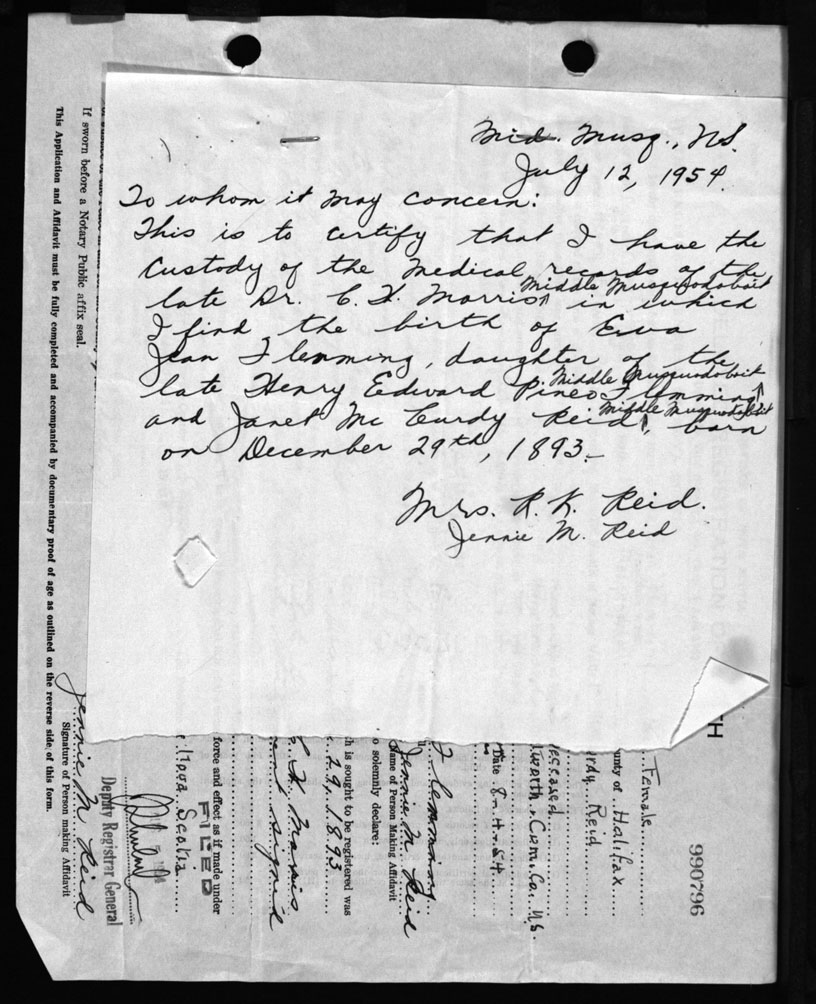 Mid. Musq., N.S.
July 12, 1954.
To whom it may concern:
This is to certify that I have the
custody of the medical records of the
Middle Musquodoboit
late Dr. C. H. Morris, in which
I find the birth of Erva
Jean Flemming, daughter of the
Middle Musquodoboit
late Henry Edward Pineo Flemming
Middle Musquodoboit
and Janet McCurdy Reid, born
on December 29th, 1893.
Mrs. R. K. Reid.
Jennie M. Reid
990796
TH
Female
County of Halifax
rdy Reid
eceased
lworth, Cum. Co. N.S.
Date 8-4-54
Flemming
Jennie M. Reid
Name of Person Making Affidavit
o solemnly declare:
h is sought to be registered was
29, 1893
C. H. Morris
signed
force and effect as if made under
FILED
Nova Scotia
Deputy Registrar General
Jennie M Reid
Signature of Person making Affidavit
If sworn before a Notary Public affix seal.
This Application and Affidavit must be fully completed and accompanied by documentary proof of age as outlined on the reverse side of this form.